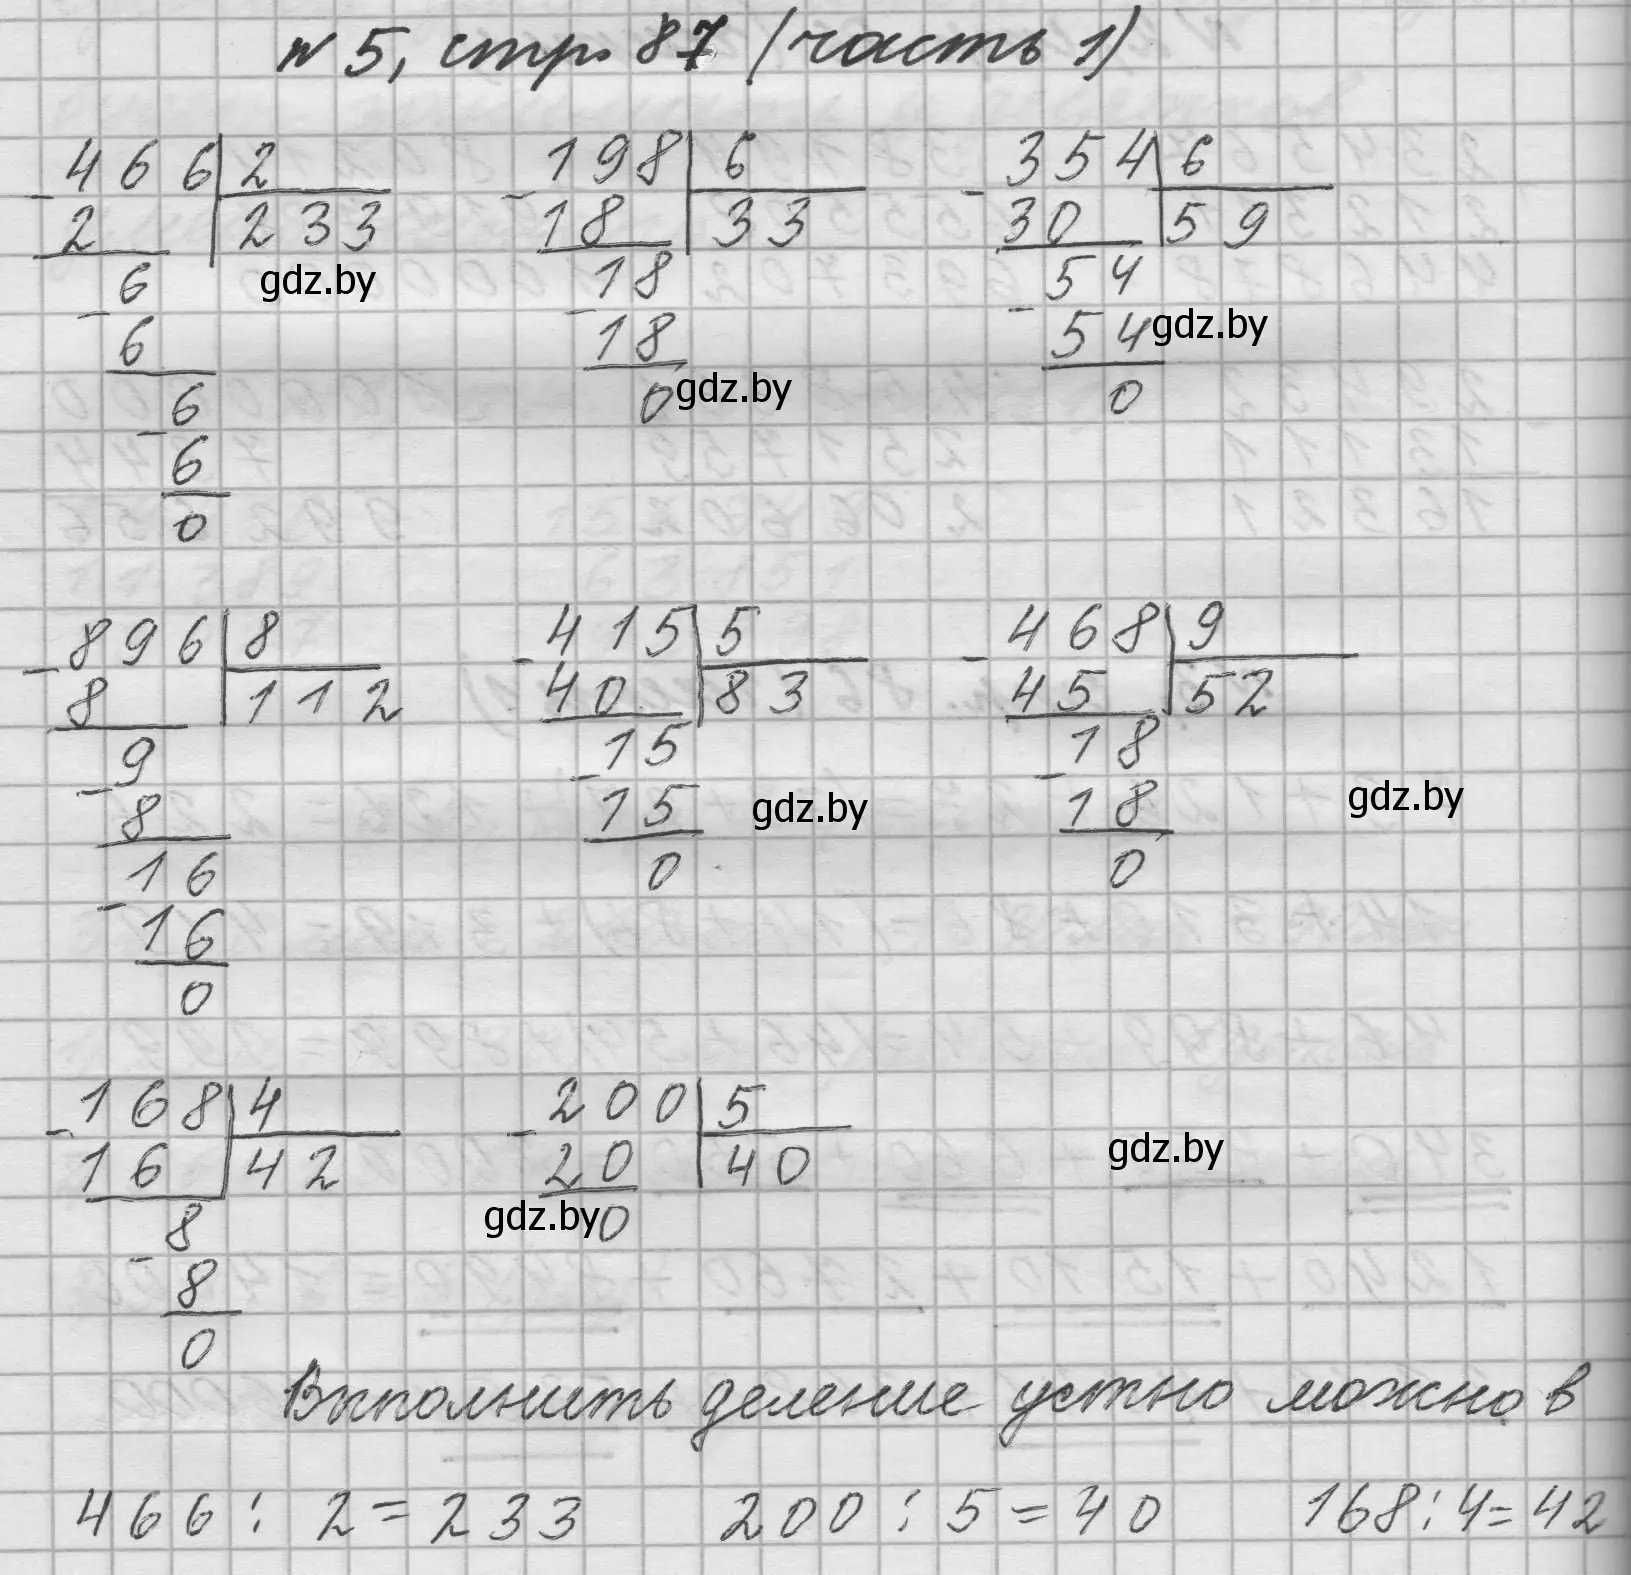 № 5, стр. 87 (часть 1)
- 466 | 2
2 | 233
- 6
6
- 6
6
0
- 198 | 6
18 | 33
- 18
18
0
- 354 | 6
30 | 59
- 54
54
0
gdz.by
gdz.by
gdz.by
- 896 | 8
8 | 112
- 9
8
- 16
16
0
- 415 | 5
40 | 83
- 15
15
0
- 468 | 9
45 | 52
- 18
18
0
gdz.by
gdz.by
- 168 | 4
16 | 42
- 8
8
0
- 200 | 5
20 | 40
0
gdz.by
gdz.by
Выполнить деление устно можно в
466 : 2 = 233 200 : 5 = 40 168 : 4 = 42